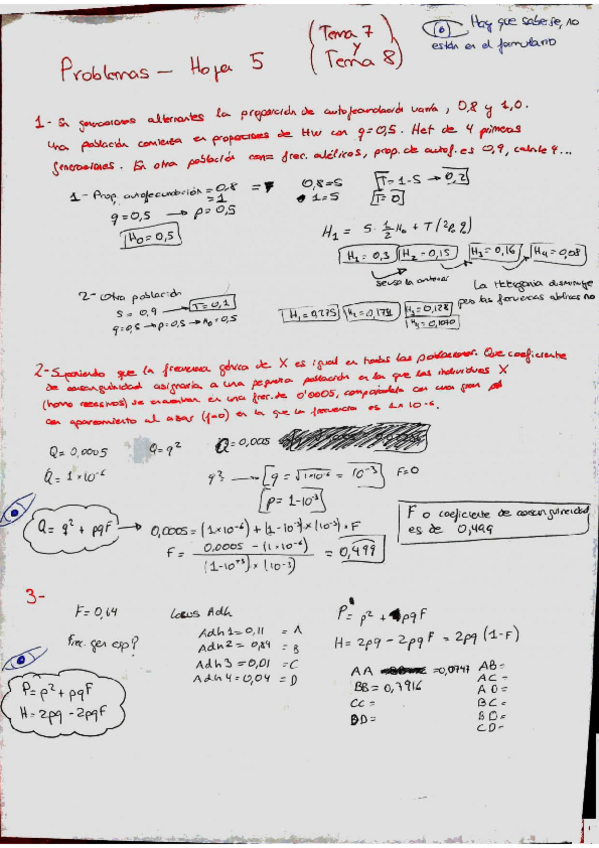 Problemas - Hoja 5
(Tema 7
y
Tema 8)
Hay que saberse, no
están en el formulario
1- En generaciones alternantes la proporción de autofecundación varía, 0,8 y 1,0.
Una población comienza en proporciones de HW con q=0,5. Het de 4 primeras
generaciones. En otra población con = frec. alélicas, prop. de autof. es 0,9, calcule 4...
1- Prop. autofecundación = 0,8
= 1
0,8 = S
1 = S
T = 1-S → 0,2
T = 0
q = 0,5 → p = 0,5
H0 = 0,5
H1 = S · 1/2 H0 + T (2p q)
H1 = 0,3 H2 = 0,15 H3 = 0,16 H4 = 0,08
se usa la anterior
2- Otra población
S = 0,9 → T = 0,1
q=0,5 → p=0,5 → H0=0,5
H1 = 0,275
H3 = 0,128
La heterogonia disminuye
pero las frecuencias alélicas no
2- Suponiendo que la frecuencia génica de X es igual en todas las poblaciones. Que coeficiente
de consanguinidad asignaría a una pequeña población en la que los individuos X
(homo recesivos) se encuentran en una frec. de 0'0005, comparándola con una gran pobl
con apareamiento al azar (f=0) en la que la frecuencia es 1×10-6.
Q = 0,0005 Q = q2 Q = 0,005
Q = 1×10-6
q = √1×10-6 = 10-3 F=0
p = 1-10-3
Q = q2 + pqF
0,0005 = (1×10-6) + (1-10-3) × (10-3) × F
F = 0,0005 - (1×10-6) / (1-10-3) × (10-3) = 0,499
F o coeficiente de consanguineidad
es de 0,499
3-
F = 0,64
Frec. gen esp?
Locus Adh
Adh 1 = 0,11 = A
Adh 2 = 0,84 = B
Adh 3 = 0,01 = C
Adh 4 = 0,04 = D
P = p2 + pqF
H = 2pq - 2pqF = 2pq (1-F)
P = p2 + pqF
H = 2pq - 2pqF
AA = 0,0747
BB = 0,7916
CC =
DD =
AB =
AC =
AD =
BC =
BD =
CD =